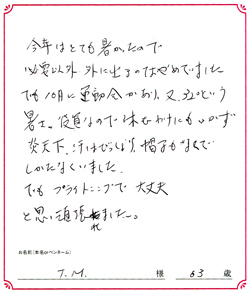 今年はとても暑かったので
必要以外 外に出るのはやめていました
でも10月に運動会があり、又、32°という
暑さ。役員なので休むわけにもいかず
炎天下、汗はびっしょり、帽子もなくて
しかたなくいました。
でもブライトニングで大丈夫
と思い頑張れました。
お名前(本名orペンネーム)
T.M. 様 63 歳